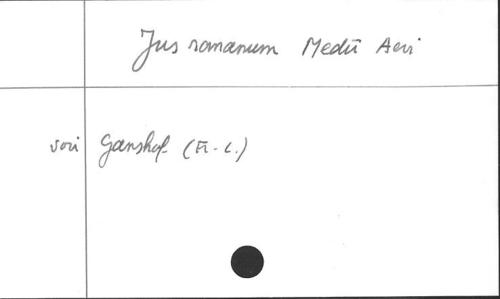 Jus romanum Medii Aevi
voir Ganshof (Fr.-L.)